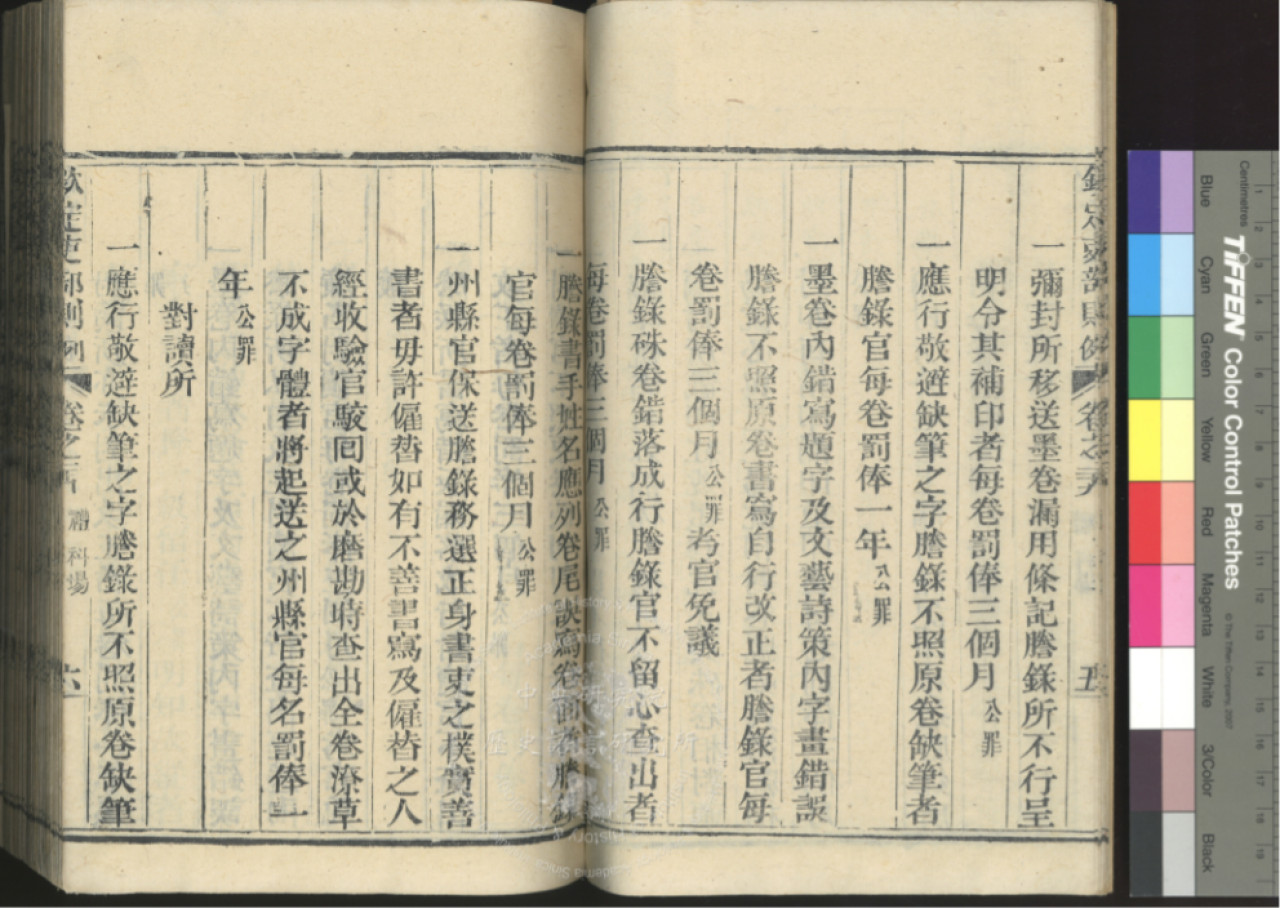 欽定吏部則例
卷之
五
一彌封所移送墨卷漏用條記謄錄所不行呈
明令其補印者每卷罰俸三個月公罪
一應行敬避缺筆之字謄錄不照原卷缺筆者
謄錄官每卷罰俸一年公罪
一墨卷內錯寫題字及文藝詩策內字畫錯誤
謄錄不照原卷書寫自行改正者謄錄官每
卷罰俸三個月公罪考官免議
一謄錄硃卷錯落成行謄錄官不留心查出者
每卷罰俸三個月公罪
一謄錄書手姓名應列卷尾誤寫卷面者謄錄
官每卷罰俸三個月公罪
一州縣官保送謄錄務選正身書吏之樸實善
書者毋許僱替如有不善書寫及僱替之人
經收驗官駁回或於磨勘時查出全卷潦草
不成字體者將起送之州縣官每名罰俸一
年公罪
對讀所
一應行敬避缺筆之字謄錄所不照原卷缺筆
欽定吏部則例
卷之
禮 科場
六
Centimetres
TIFFEN Color Control Patches
© The Tiffen Company, 2007
Blue
Cyan
Green
Yellow
Red
Magenta
White
3/Color
Black
1 2 3 4 5 6 7 8 9 10 11 12 13 14 15 16 17 18 19